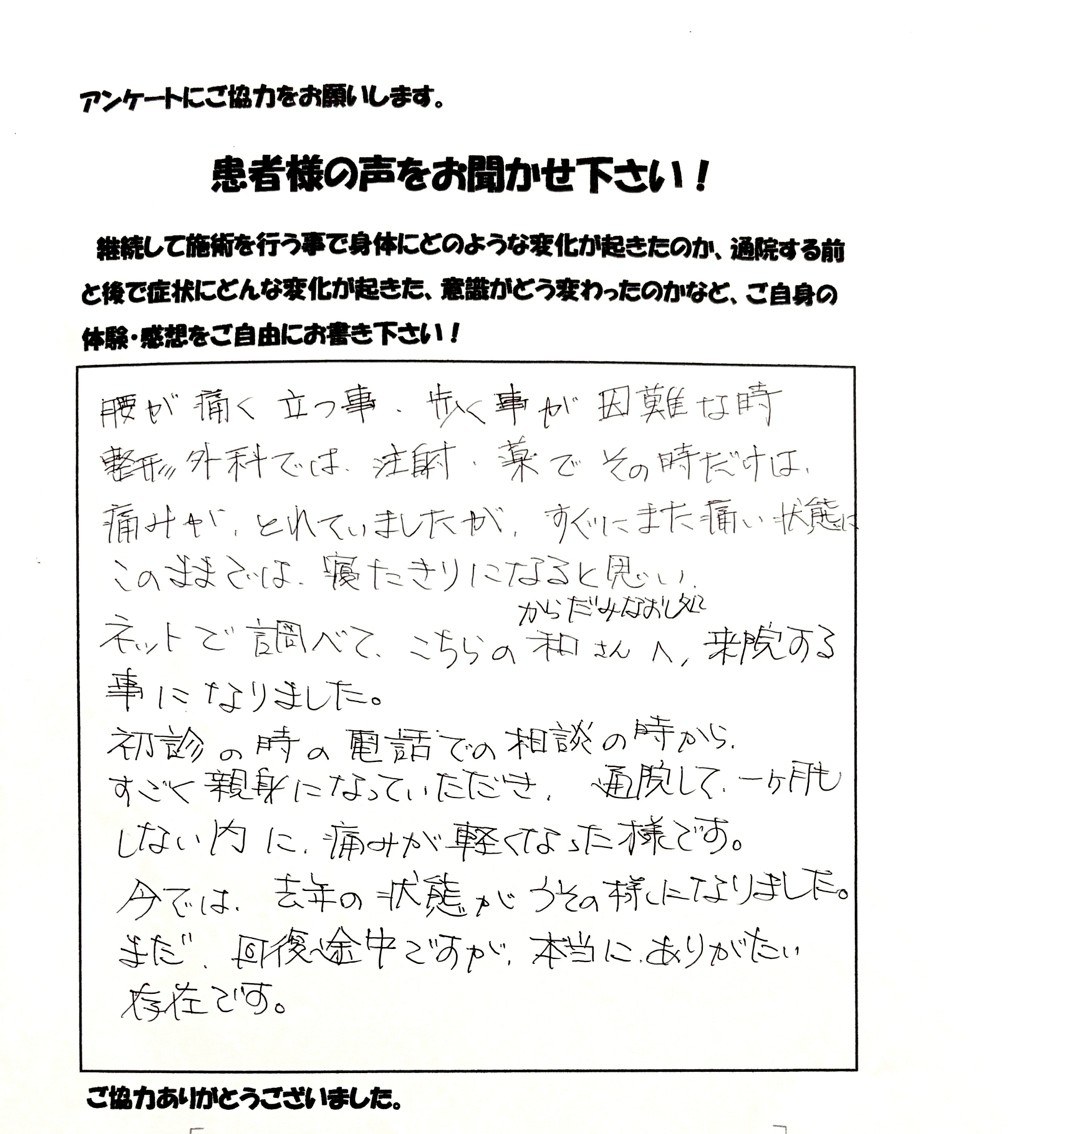 アンケートにご協力をお願いします。
患者様の声をお聞かせ下さい！
継続して施術を行う事で身体にどのような変化が起きたのか、通院する前
と後で症状にどんな変化が起きた、意識がどう変わったのかなど、ご自身の
体験・感想をご自由にお書き下さい！
腰が痛く立つ事、歩く事が困難な時
整形外科では、注射、薬でその時だけは、
痛みが、とれていましたが、すぐにまた痛い状態に
このままでは、寝たきりになると思い、
からだみなおし処
ネットで調べて、こちらの和さんへ、来院する
事になりました。
初診の時の電話での相談の時から、
すごく親身になっていただき、通院して、一ヶ月も
しない内に、痛みが軽くなった様です。
今では、去年の状態がうその様になりました。
まだ、回復途中ですが、本当に、ありがたい
存在です。
ご協力ありがとうございました。